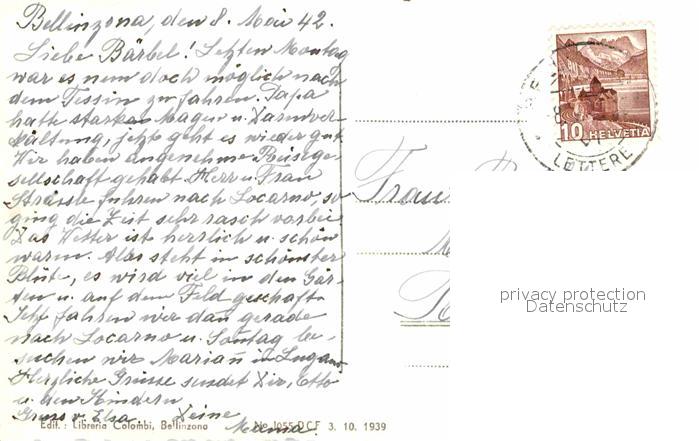 Bellinzona, den 8. Mai 42.
Liebe Bärbel! Letzten Montag
war es nun doch möglich nach
dem Tessin zu fahren. Papa
hatte starke Magen u. Darmver-
kältung, jetzt geht es wieder gut.
Wir haben angenehme Reisege-
sellschaft gehabt Herr u. Frau
Strässle fuhren nach Locarno, so
ging die Zeit sehr rasch vorbei.
Das Wetter ist herrlich u. schön
warm. Alles steht in schönster
Blüte, es wird viel in den Gär-
ten u. auf dem Feld geschafft.
Jetzt fahren wir dan gerade
nach Locarno u. Sontag be-
suchen wir Mariann in Lugano.
Herzliche Grüsse sendet Dir, Otto
u. den Kindern
Gruss v. Elsa. Deine
Mama.
Edit.: Libreria Colombi, Bellinzona
No 1055 DCF 3. 10. 1939
10 HELVETIA
LETTERE
Frau
privacy protection
Datenschutz